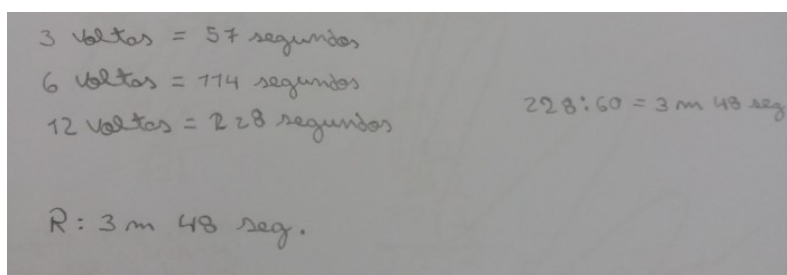 3 voltas = 57 segundos
6 voltas = 114 segundos
12 voltas = 228 segundos
228:60 = 3 m 48 seg
R: 3 m 48 seg.